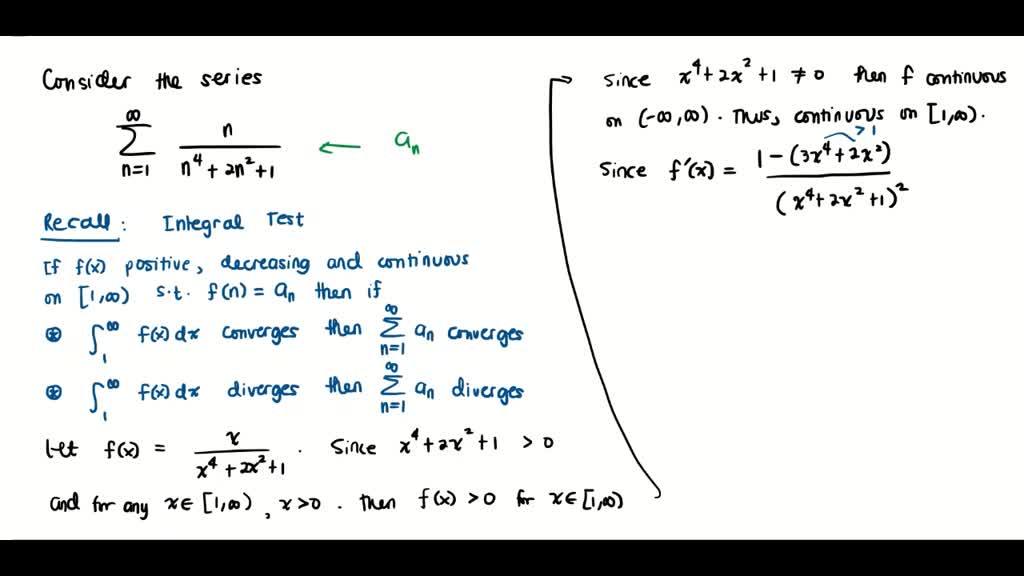 Consider the series
∞
∑ n / (n⁴ + 2n² + 1) ← aₙ
n=1
Recall: Integral Test
If f(x) positive, decreasing and continuous
on [1,∞) s.t. f(n) = aₙ then if
⊛ ∫₁^∞ f(x) dx converges then ∑_{n=1}^∞ aₙ converges
⊛ ∫₁^∞ f(x) dx diverges then ∑_{n=1}^∞ aₙ diverges
Let f(x) = x / (x⁴ + 2x² + 1) . Since x⁴ + 2x² + 1 > 0
and for any x ∈ [1,∞), x > 0 . Then f(x) > 0 for x ∈ [1,∞)
Since x⁴ + 2x² + 1 ≠ 0 then f continuous
on (-∞,∞) . Thus, continuous on [1,∞).
> 1
Since f'(x) = 1 - (3x⁴ + 2x²) / (x⁴ + 2x² + 1)²